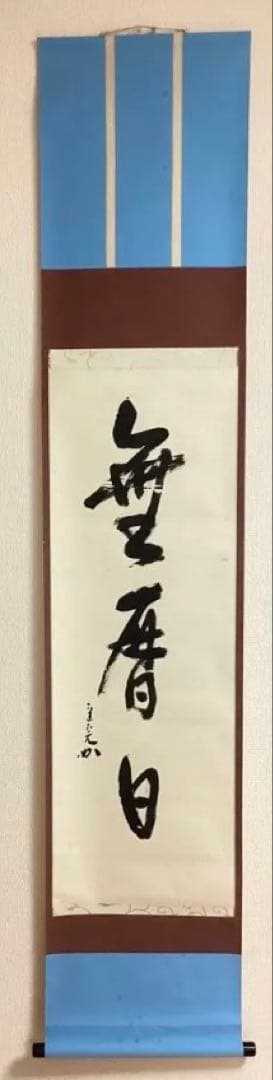 無暦日